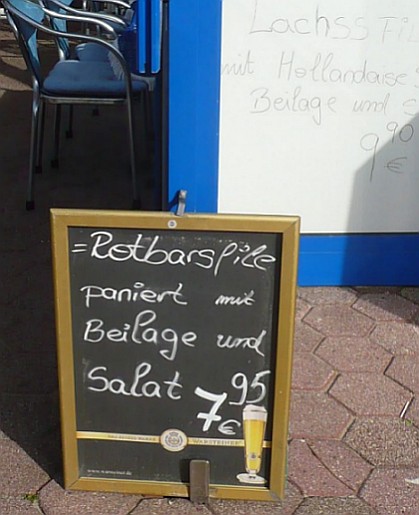 Lachssfil
mit Hollandaise
Beilage und S
9 90
€
=Rotbarsfile
paniert mit
Beilage und
Salat 7 95
€
WARSTEINER
www.warsteiner.de